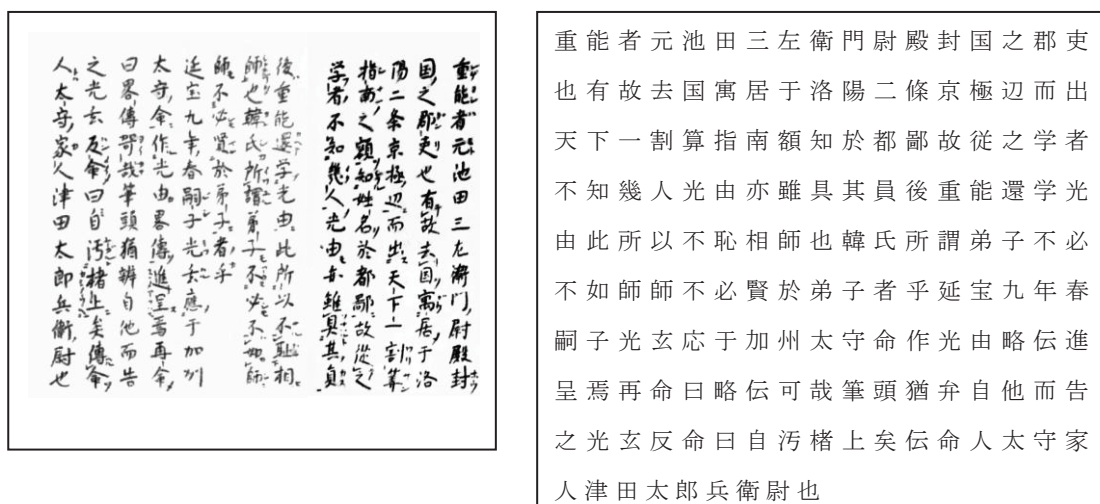 重能者元池田三左衛門尉殿封
国之郡吏也有故去国寓居于洛
陽二条京極辺而出天下一割算
指南之額知姓名於都鄙故從之
学者不知幾人光由亦雖具其員
後重能還学光由此所以不耻相
師也韓氏所謂弟子不必不如師
師不必賢於弟子者乎
延宝九年春嗣子光玄應于加州
太守命作光由畧傳進呈焉再命
曰畧傳可哉筆頭猶辨自他而告
之光玄反命曰自汚楮上矣傳命
人太守家人津田太郎兵衛尉也
重能者元池田三左衛門尉殿封国之郡吏
也有故去国寓居于洛陽二條京極辺而出
天下一割算指南額知於都鄙故従之学者
不知幾人光由亦雖具其員後重能還学光
由此所以不恥相師也韓氏所謂弟子不必
不如師師不必賢於弟子者乎延宝九年春
嗣子光玄応于加州太守命作光由略伝進
呈焉再命曰略伝可哉筆頭猶弁自他而告
之光玄反命曰自汚楮上矣伝命人太守家
人津田太郎兵衛尉也